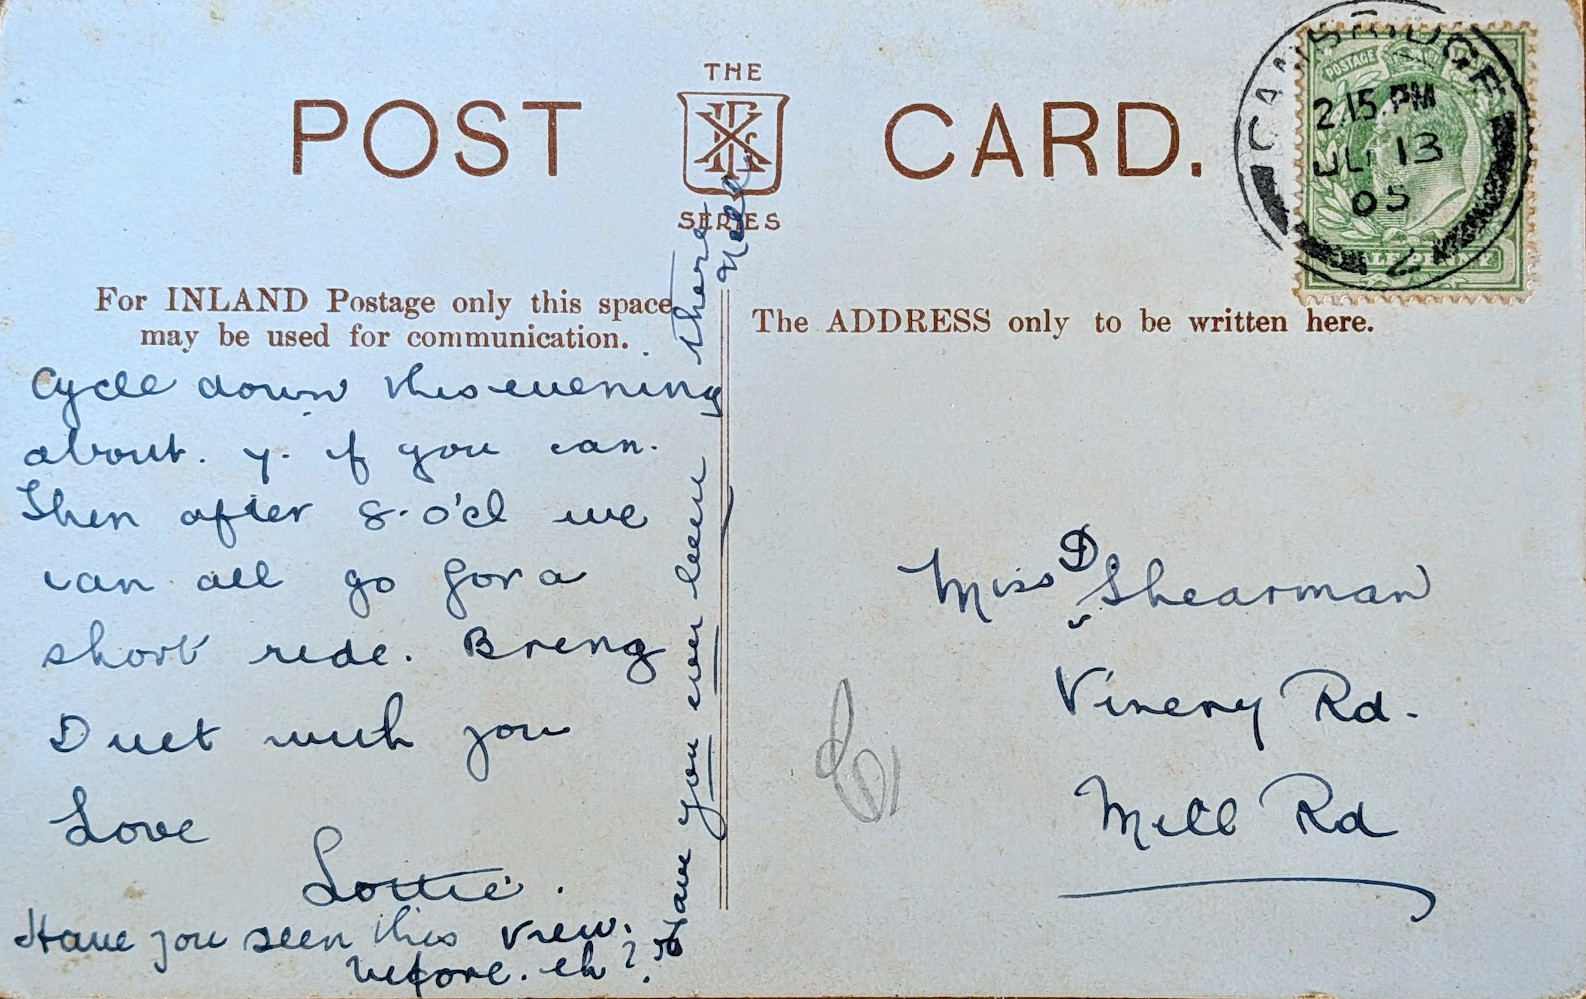 THE
POST CARD.
SERIES
CAMBRIDGE
2.15 PM
JU 13
05
2
POSTAGE
HALFPENNY
For INLAND Postage only this space
may be used for communication.
The ADDRESS only to be written here.
Cycle down this evening
about. 7. if you can.
Then after 8. o'cl we
can all go for a
short ride. Bring
Duet with you
Love
Lottie.
Have you seen this view.
before. eh?.
Have you ever been there
Miss D Shearman
Vinery Rd.
Mill Rd